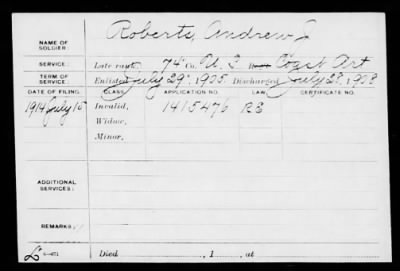 NAME OF SOLDIER: Roberts, Andrew J
SERVICE: Late rank, 74" Co. U. S. Coast Art
TERM OF SERVICE: Enlisted July 29", 1905 Discharged July 28, 1908
DATE OF FILING. CLASS. APPLICATION NO. LAW. CERTIFICATE NO.
1914 July 15 Invalid, 1415476 RE
Widow,
Minor,
ADDITIONAL SERVICES:
REMARKS:
Died , 1 , at